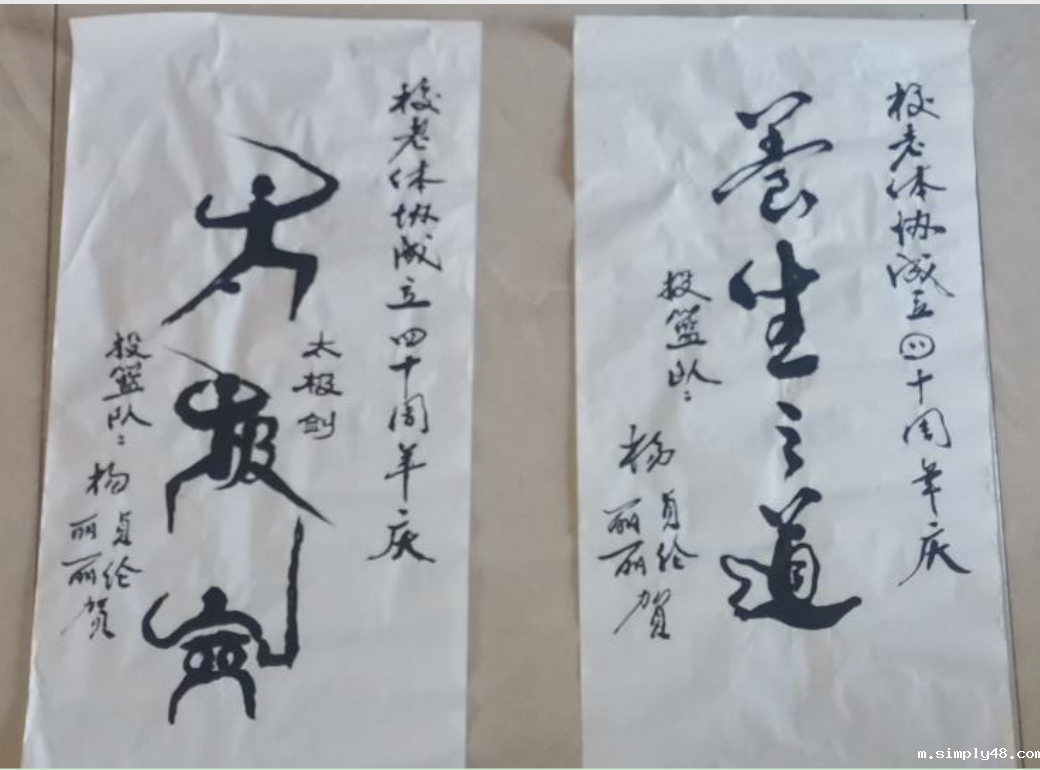 校老体协成立四十周年庆
太极剑
太极剑
投篮队：
杨
贞伦
丽丽贺
校老体协成立四十周年庆
養生之道
投篮队：
杨
贞伦
丽丽賀
m.simply48.com